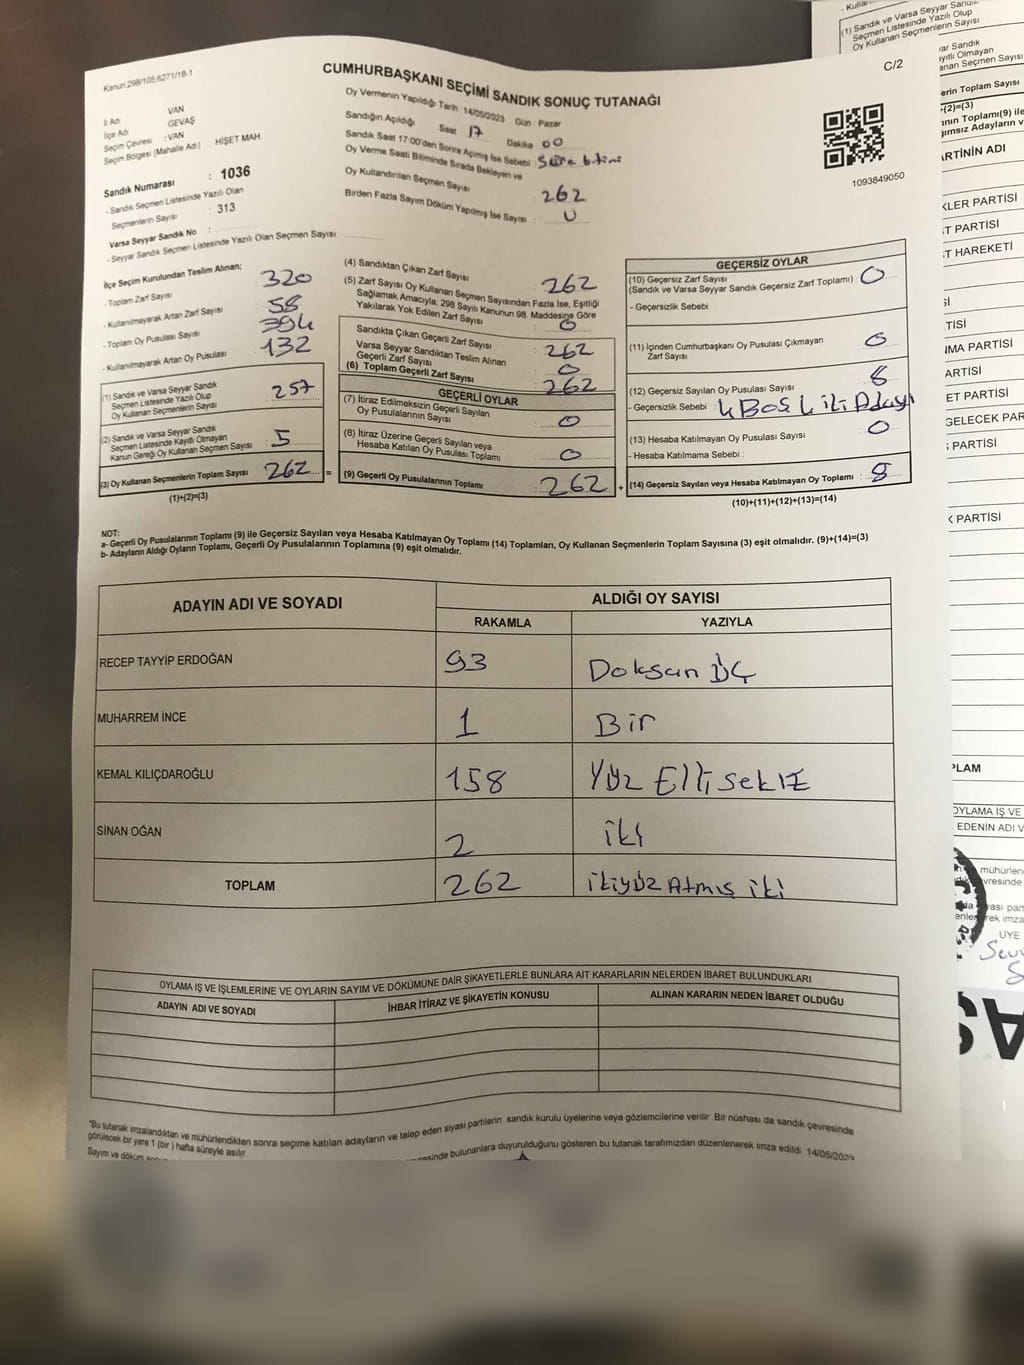 Kanun:298/105,6271/18-1
C/2
CUMHURBAŞKANI SEÇİMİ SANDIK SONUÇ TUTANAĞI
İl Adı : VAN
İlçe Adı : GEVAŞ
Seçim Çevresi : VAN
Seçim Bölgesi (Mahalle Adı) HİŞET MAH.
Sandık Numarası : 1036
- Sandık Seçmen Listesinde Yazılı Olan
Seçmenlerin Sayısı : 313
Varsa Seyyar Sandık No :
- Seyyar Sandık Seçmen Listesinde Yazılı Olan Seçmen Sayısı:
Oy Vermenin Yapıldığı Tarih 14/05/2023 Gün : Pazar
Sandığın Açıldığı Saat 17 Dakika 00
Sandık Saat 17:00'den Sonra Açılmış İse Sebebi : Süre bitimi
Oy Verme Saati Bitiminde Sırada Bekleyen ve
Oy Kullandırılan Seçmen Sayısı : 262
Birden Fazla Sayım Döküm Yapılmış İse Sayısı : 0
1093849050
İlçe Seçim Kurulundan Teslim Alınan;
- Toplam Zarf Sayısı 320
- Kullanılmayarak Artan Zarf Sayısı 58
- Toplam Oy Pusulası Sayısı 394
- Kullanılmayarak Artan Oy Pusulası 132
(1) Sandık ve Varsa Seyyar Sandık
Seçmen Listesinde Yazılı Olup
Oy Kullanan Seçmenlerin Sayısı : 257
(2) Sandık ve Varsa Seyyar Sandık
Seçmen Listesinde Kayıtlı Olmayan
Kanun Gereği Oy Kullanan Seçmen Sayısı : 5
(3) Oy Kullanan Seçmenlerin Toplam Sayısı : 262 =
(1)+(2)=(3)
(4) Sandıktan Çıkan Zarf Sayısı : 262
(5) Zarf Sayısı Oy Kullanan Seçmen Sayısından Fazla İse, Eşitliği
Sağlamak Amacıyla; 298 Sayılı Kanunun 98. Maddesine Göre
Yakılarak Yok Edilen Zarf Sayısı : 0
Sandıkta Çıkan Geçerli Zarf Sayısı : 262
Varsa Seyyar Sandıktan Teslim Alınan
Geçerli Zarf Sayısı : 0
(6) Toplam Geçerli Zarf Sayısı : 262
GEÇERLİ OYLAR
(7) İtiraz Edilmeksizin Geçerli Sayılan
Oy Pusulalarının Sayısı : 0
(8) İtiraz Üzerine Geçerli Sayılan veya
Hesaba Katılan Oy Pusulası Toplamı : 0
(9) Geçerli Oy Pusulalarının Toplamı : 262 +
GEÇERSİZ OYLAR
(10) Geçersiz Zarf Sayısı
(Sandık ve Varsa Seyyar Sandık Geçersiz Zarf Toplamı) : 0
- Geçersizlik Sebebi
(11) İçinden Cumhurbaşkanı Oy Pusulası Çıkmayan
Zarf Sayısı : 0
(12) Geçersiz Sayılan Oy Pusulası Sayısı : 8
- Geçersizlik Sebebi : 4 BOŞ 4 iki Adayı
(13) Hesaba Katılmayan Oy Pusulası Sayısı : 0
- Hesaba Katılmama Sebebi :
(14) Geçersiz Sayılan veya Hesaba Katılmayan Oy Toplamı : 8
(10)+(11)+(12)+(13)=(14)
NOT:
a- Geçerli Oy Pusulalarının Toplamı (9) ile Geçersiz Sayılan veya Hesaba Katılmayan Oy Toplamı (14) Toplamları, Oy Kullanan Seçmenlerin Toplam Sayısına (3) eşit olmalıdır. (9)+(14)=(3)
b- Adayların Aldığı Oyların Toplamı, Geçerli Oy Pusulalarının Toplamına (9) eşit olmalıdır.
ADAYIN ADI VE SOYADI
ALDIĞI OY SAYISI
RAKAMLA YAZIYLA
RECEP TAYYİP ERDOĞAN 93 Doksan Üç
MUHARREM İNCE 1 Bir
KEMAL KILIÇDAROĞLU 158 Yüz Elli sekiz
SİNAN OĞAN 2 iki
TOPLAM 262 ikiyüz Atmış iki
OYLAMA İŞ VE İŞLEMLERİNE VE OYLARIN SAYIM VE DÖKÜMÜNE DAİR ŞİKAYETLERLE BUNLARA AİT KARARLARIN NELERDEN İBARET BULUNDUKLARI
ADAYIN ADI VE SOYADI İHBAR İTİRAZ VE ŞİKAYETİN KONUSU ALINAN KARARIN NEDEN İBARET OLDUĞU
"Bu tutanak imzalandıktan ve mühürlendikten sonra seçime katılan adayların ve talep eden siyasi partilerin sandık kurulu üyelerine veya gözlemcilerine verilir. Bir nüshası da sandık çevresinde
görülecek bir yere 1 (bir) hafta süreyle asılır.
Sayım ve döküm
esinde bulunanlara duyurulduğunu gösteren bu tutanak tarafımızdan düzenlenerek imza edildi. 14/05/2023
(1) Sandık ve Varsa Seyyar Sandık
Seçmen Listesinde Yazılı Olup
Oy Kullanan Seçmenlerin Sayısı
ar Sandık
yıtlı Olmayan
anan Seçmen Sayısı
erin Toplam Sayısı
+(2)=(3)
nın Toplamı(9) ile
ğımsız Adayların v
ARTİNİN ADI
KLER PARTİSİ
T PARTİSİ
T HAREKETİ
Sİ
TİSİ
IMA PARTİSİ
ARTİSİ
ET PARTİSİ
GELECEK PAR
PARTİSİ
K PARTİSİ
PLAM
OYLAMA İŞ VE
EDENİN ADI V
mühürlen
vresinde
ası part
rek imza
ÜYE